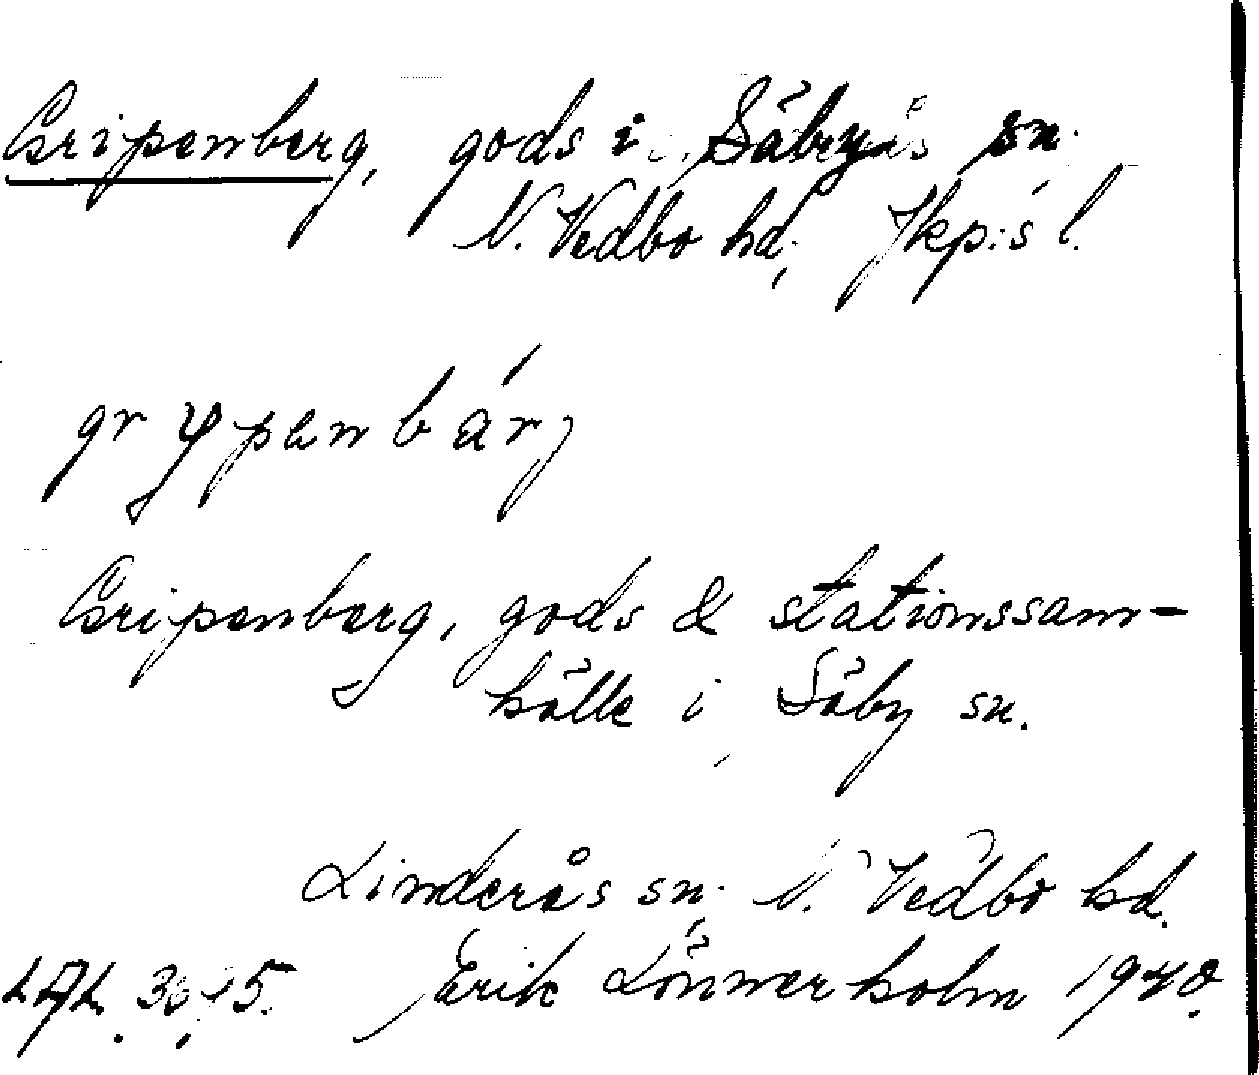 Gripenberg, gods i Säby sn.
N. Vedbo hd, Jkp:s l.
grypenbárj
Gripenberg, gods & stationssam-
hälle i Säby sn.
Linderås sn. N. Vedbo hd.
Erik Lönnerholm 1940.